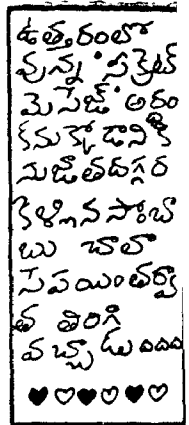 ఉత్తరంలో
వున్న 'సీక్రెట్
మెసేజ్' అర్థం
కనుక్కోడానికి
సుజాతదగ్గర
కెళ్లిన సోంబా
బు చాలా
సేపయింతర్వా
త తిరిగి
వచ్చాడు....